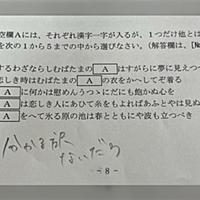 空欄Aには、それぞれ漢字一字が入るが、1つだけ他とは
を次の1から5までの中から選びなさい。(解答欄は、[№
するわざならしむばたまの A はすがらに夢に見えつ
恋しき時はむばたまの A の衣をかへしてぞ着る
A に何かは慰めんうつヽにだにも飽かぬ心を
A は恋しき人にあひて糸をもよればあふとやは見ぬ
A をへて氷る原の池は春とともにや波も立つべき
分かる訳
ないだろ
-8-